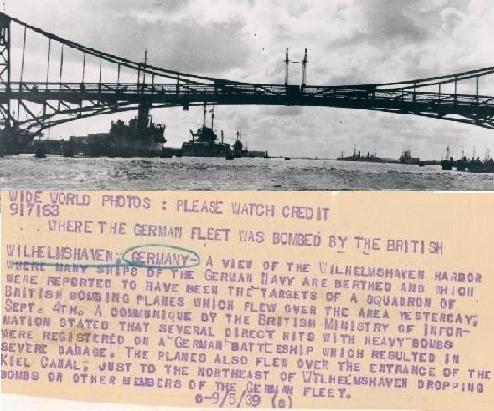 WIDE WORLD PHOTOS : PLEASE WATCH CREDIT
917163
WHERE THE GERMAN FLEET WAS BOMBED BY THE BRITISH
WILHELMSHAVEN, GERMANY- A VIEW OF THE WILHELMSHAVEN HARBOR
WHERE MANY SHIPS OF THE GERMAN NAVY ARE BERTHED AND WHICH
WERE REPORTED TO HAVE BEEN THE TARGETS OF A SQUADRON OF
BRITISH BOMBING PLANES WHICH FLEW OVER THE AREA YESTERDAY,
SEPT. 4TH. A COMMUNIQUE BY THE BRITISH MINISTRY OF INFOR-
MATION STATED THAT SEVERAL DIRECT HITS WITH HEAVY BOMBS
WERE REGISTERED ON A GERMAN BATTLESHIP WHICH RESULTED IN
SEVERE DAMAGE. THE PLANES ALSO FLEW OVER THE ENTRANCE OF THE
KIEL CANAL; JUST TO THE NORTHEAST OF WILHELMSHAVEN DROPPING
BOMBS ON OTHER MEMBERS OF THE GERMAN FLEET.
O-9/5/39 (S)